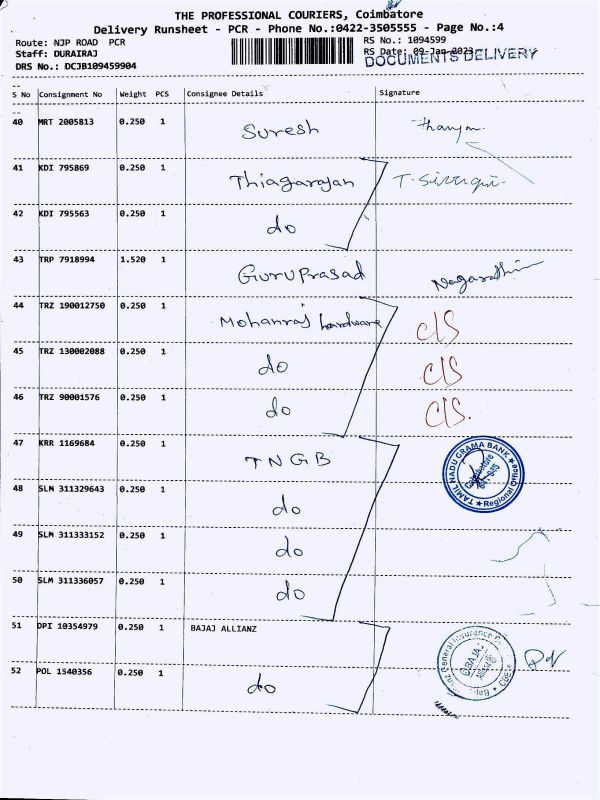 THE PROFESSIONAL COURIERS, Coimbatore
Delivery Runsheet - PCR - Phone No.:0422-3505555 - Page No.:4
Route: NJP ROAD PCR
RS No.: 1094599
Staff: DURAIRAJ
RS Date: 09-Jan-2023
DOCUMENTS DELIVERY
DRS No.: DCJB109459904
S No Consignment No Weight PCS Consignee Details Signature
40 MRT 2005813 0.250 1 Suresh
41 KDI 795869 0.250 1 Thiagarajan
42 KDI 795563 0.250 1 do
43 TRP 7918994 1.520 1 GuruPrasad
44 TRZ 190012750 0.250 1 Mohanraj hardware C/S
45 TRZ 130002088 0.250 1 do C/S
46 TRZ 90001576 0.250 1 do C/S.
47 KRR 1169684 0.250 1 TNGB
TAMIL NADU GRAMA BANK ★ Regional Office ★
Coimbatore
48 SLM 311329643 0.250 1 do
49 SLM 311333152 0.250 1 do
50 SLM 311336057 0.250 1 do
51 DPI 10354979 0.250 1 BAJAJ ALLIANZ
52 POL 1540356 0.250 1 do